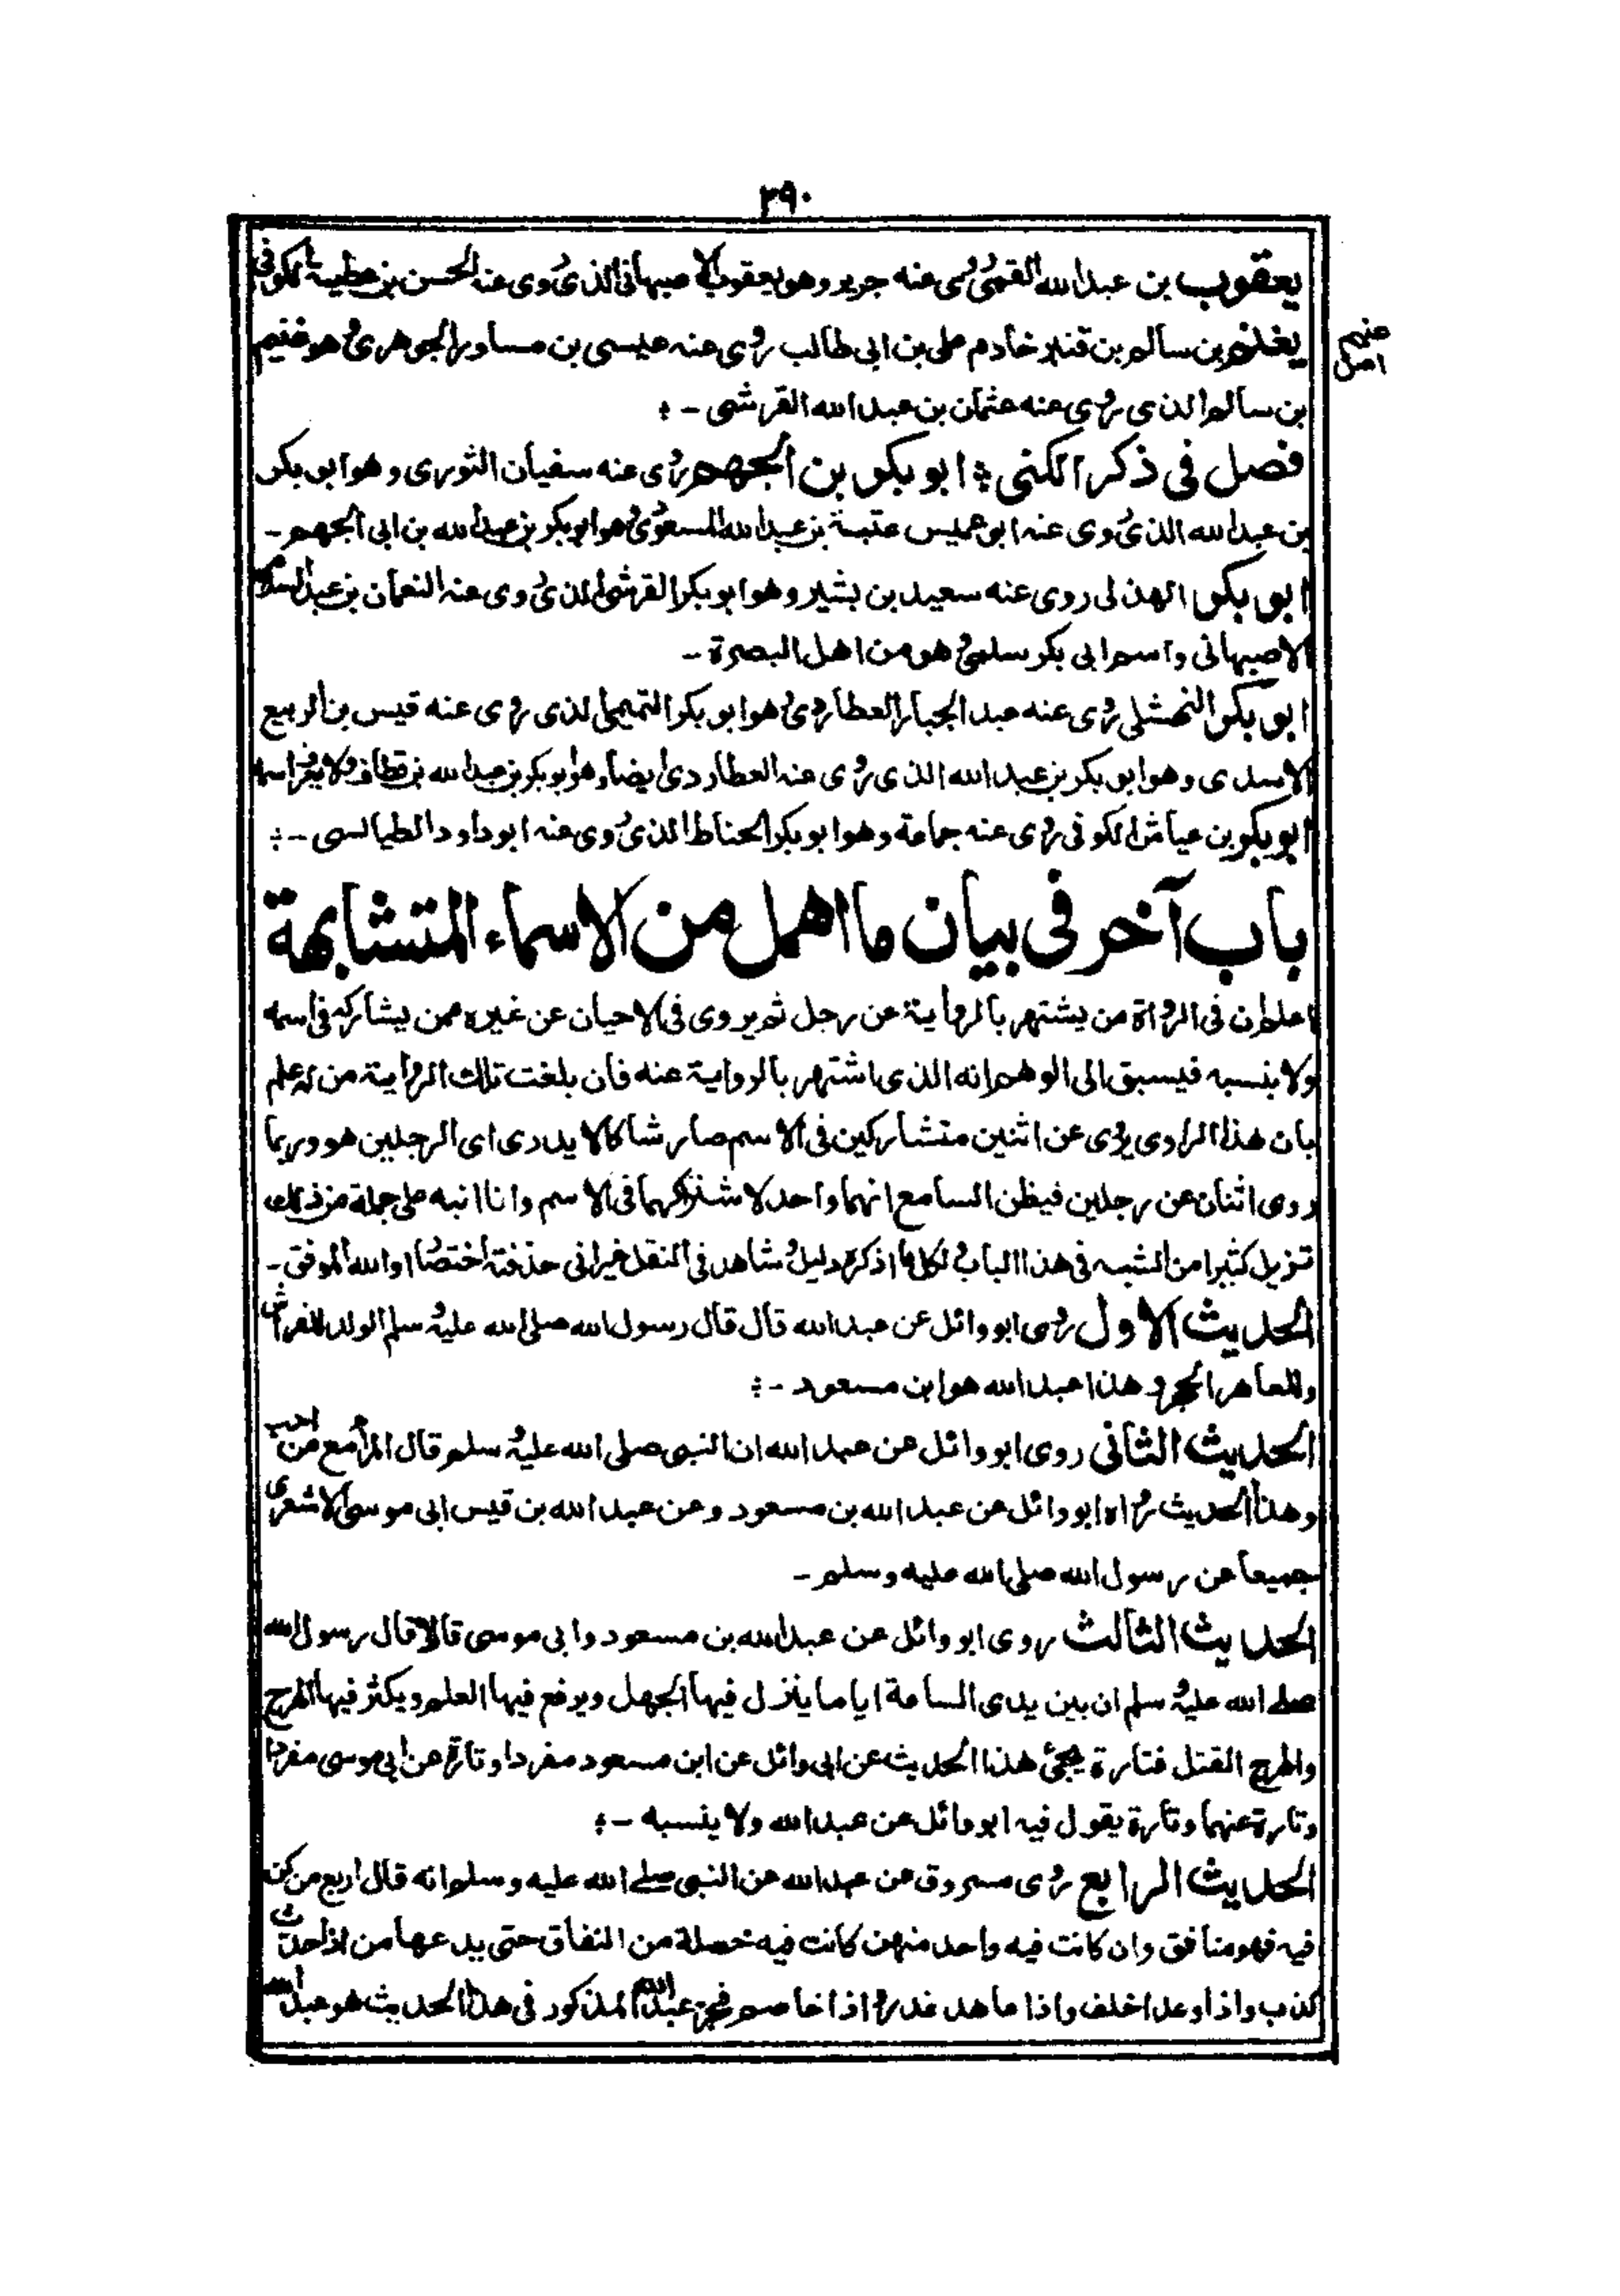 ٢٩٠
يعقوب بن عبد الله القمى روى عنه جرير وهو يعقوب الاصبهانى الذى روى عنه الحسن بن عطية الكوفى
يغنم بن سالم بن قنبر خادم على بن ابى طالب روى عنه عيسى بن مساور الجوهرى وهو غنيم
بن سالم الذى روى عنه عثمان بن عبد الله القرشى -:
فصل فى ذكر الكنى : ابو بكر بن الجهم روى عنه سفيان الثورى وهو ابو بكر
بن عبد الله الذى روى عنه ابو عميس عتبة بن عبد الله المسعودى وهو ابو بكر بن عبد الله بن ابى الجهم -
ابو بكر الهذلى روى عنه سعيد بن بشير وهو ابو بكر القرشى الذى روى عنه النعمان بن عبد السلام
الاصبهانى واسم ابى بكر سلمى وهو من اهل البصرة -
ابو بكر النهشلى روى عنه عبد الجبار العطاردى وهو ابو بكر التميمى الذى روى عنه قيس بن الربيع
الاسدى وهو ابو بكر بن عبد الله الذى روى عنه العطاردى ايضا وهو ابو بكر بن عبد الله بن قطاف ولا يعرف اسمه
ابو بكر بن عياش الكوفى روى عنه جماعة وهو ابو بكر الحناط الذى روى عنه ابو داود الطيالسى -:
باب آخر فى بيان ما اهمل من الاسماء المتشابهة
اعلم ان فى الرواة من يشتهر بالرواية عن رجل ثم يروى فى الاحيان عن غيره ممن يشاركه فى اسمه
ولا ينسبه فيسبق الى الوهم انه الذى اشتهر بالرواية عنه فان بلغت تلك الرواية من له علم
بان هذا الراوى يروى عن اثنين متشاركين فى الاسم صار شاكا لا يدرى اى الرجلين هو وربما
روى اثنان عن رجلين فيظن السامع انهما واحد لاشتراكهما فى الاسم وانا انبه على جملة من ذلك
تزيل كثيرا من الشبه فى هذا الباب ولكل ما اذكره دليل وشاهد فى النقل غير انى حذفته اختصارا والله الموفق -
الحديث الاول روى ابو وائل عن عبد الله قال قال رسول الله صلى الله عليه وسلم الولد للفراش
وللعاهر الحجر وهذا عبد الله هو ابن مسعود -:
الحديث الثانى روى ابو وائل عن عبد الله ان النبى صلى الله عليه وسلم قال المرأ مع من احب
وهذا الحديث رواه ابو وائل عن عبد الله بن مسعود وعن عبد الله بن قيس ابى موسى الاشعرى
جميعا عن رسول الله صلى الله عليه وسلم -
الحديث الثالث روى ابو وائل عن عبد الله بن مسعود وابى موسى قالا قال رسول الله
صلى الله عليه وسلم ان بين يدى الساعة اياما ينزل فيها الجهل ويرفع فيها العلم ويكثر فيها الهرج
والهرج القتل فتارة يجئ هذا الحديث عن ابى وائل عن ابن مسعود مفردا وتارة عن ابى موسى مفردا
وتارة عنهما وتارة يقول فيه ابو وائل عن عبد الله ولا ينسبه -:
الحديث الرابع روى مسروق عن عبد الله عن النبى صلى الله عليه وسلم انه قال اربع من كن
فيه فهو منافق وان كانت فيه واحد منهن كانت فيه خصلة من النفاق حتى يدعها من اذا حدث
كذب واذا وعد اخلف واذا عاهد غدر واذا خاصم فجر عبد الله المذكور فى هذا الحديث هو عبد الله
غنيم
اصل